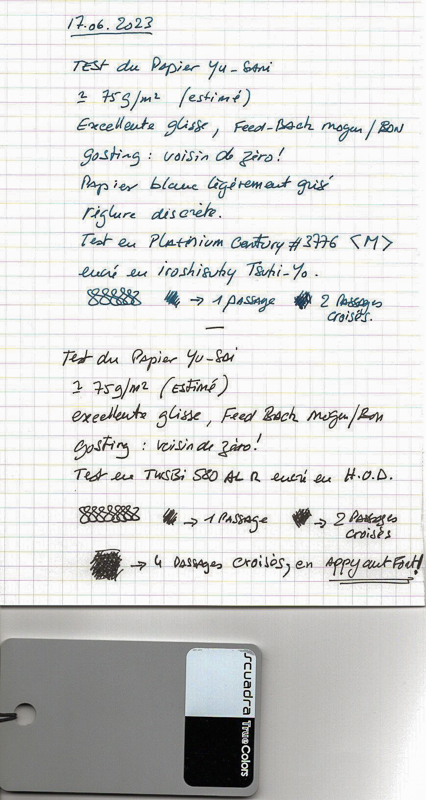 17.06.2023
TEST du Papier Yu-Sari
± 75g/m² (estimé)
Excellente glisse, Feed-Back moyen/BON
gosting : voisin de zèro!
Papier blanc légèrement grisé
règlure discrète.
Test en Platinium Century #3776 <M>
encré en iroshisuby Tsuki-Yo.
→ 1 passage → 2 Passages
croisés.
—
Test du Papier Yu-Sai
± 75g/m² (ESTIMÉ)
excellente glisse, Feed Back moyen/Bon
gosting : voisin de zèro!
Test en TWSBi 580 AL R encré en H.O.D.
→ 1 PASSAGE → 2 Passages
croisés
→ 4 passages croisès, en Appyant Fort!
scuadra TrueColors